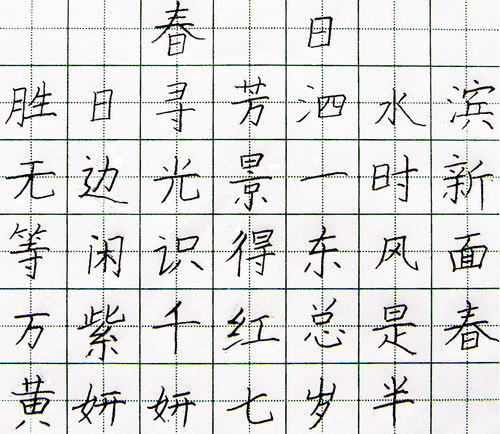 春日
胜日寻芳泗水滨
无边光景一时新
等闲识得东风面
万紫千红总是春
黄妍妍七岁半